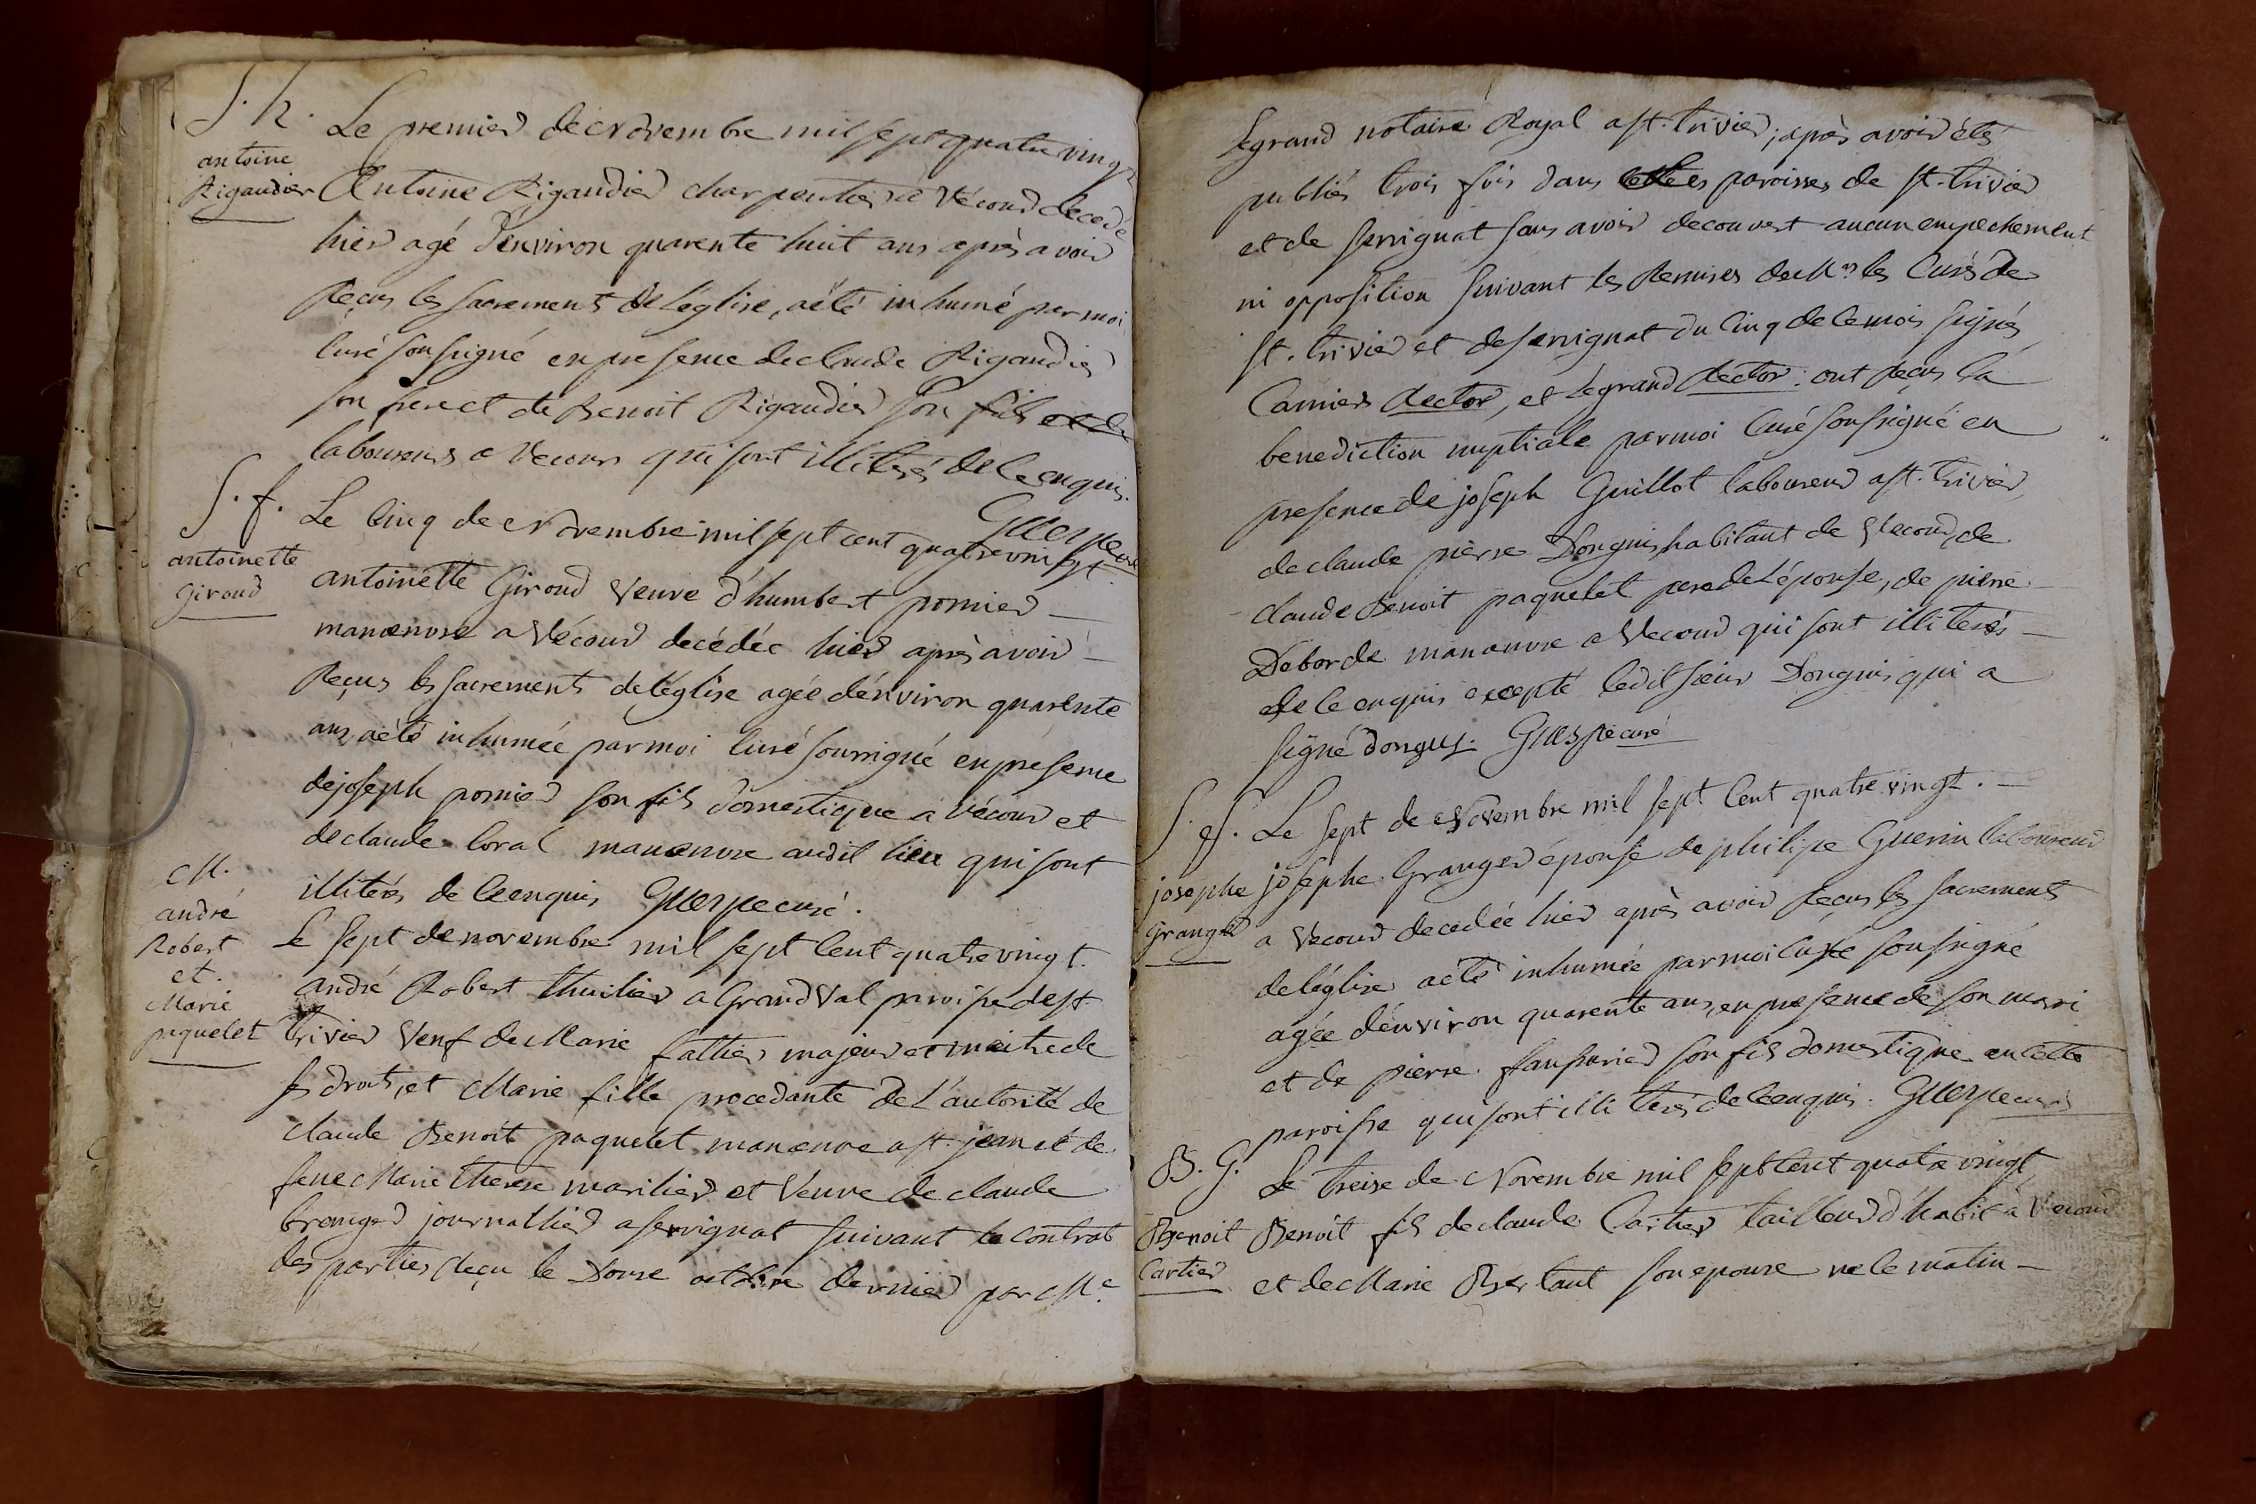 S. h.
antoine
Rigaudier
Le premier de Novembre mil sept quatre vingt
Antoine Rigaudier charpentier a Vécour decedé
hier agé d'environ quarente huit ans après avoir
reçus les sacrements de l'eglise, a été inhumé par moi
curé soussigné en presence de claude Rigaudier
son frere et de Benoit Rigaudier son fils et de
laboureurs a Vecour qui sont illiterés de ce enquis.
Guerpe curé
S. f.
antoinette
Giroud
Le cinq de Novembre mil sept cent quatre vingt
antoinette Giroud veuve d'humbert pornier
manœuvre a Vécour decédée hier après avoir
reçus les sacrements de l'église agée d'environ quarente
ans a été inhumée par moi curé soussigné en presence
de joseph pornier son fils domestique a Vécour et
de claude loral manœuvre audit lieu qui sont
illiterés de ce enquis Guerpe curé.
M.
andré
Robert
et.
Marie
paquelet
Le sept de novembre mil sept cent quatre vingt.
andré Robert thuilier a Grand Val paroisse de st
trivier Veuf de Marie fattier majeur et maitre de
ses droits, et Marie fille procedante de L'autorité de
claude Benoit paquelet manœuvre a st. jean et de
feue Marie therese marilier et Veuve de claude
branger journallier a servignat suivant le contrat
des parties reçu le Douse octobre dernier par Me.
Legrand notaire Royal a st. trivier; après avoir étés
publiés trois fois dans les paroisses de st. trivier
et de servignat sans avoir decouvert aucun empechement
ni opposition suivant les Remises de Mrs les Curés de
st. trivier et de servignat du cinq de ce mois signés
Carnier rector, et Legrand rector. ont reçus la
benediction nuptiale par moi Curé soussigné en
presence de joseph Guillot laboureur a st. trivier,
de claude pierre Donguis habitant de Vecour, de
claude Benoit paquelet pere de L'épouse, de pierre
Deborde manœuvre a Vecour qui sont illiterés
de ce enquis excepté ledit sieur Donguis qui a
signé donguy. Guerpe curé
S. f.
josephe
Granger
Le sept de Novembre mil sept cent quatre vingt.
josephe Granger épouse de philipe Guerin laboureur
a Vecour decedée hier après avoir reçus les sacrements
de l'église a été inhumée par moi curé soussigné
agée d'environ quarente ans, en presence de son mari
et de pierre son fils domestique en cette
paroisse qui sont illiterés de ce enquis. Guerpe curé
B. G.
Benoit
Cartier
Le treise de Novembre mil sept cent quatre vingt
Benoit fils de claude Cartier tailleur d'habit à Vecour
et de Marie Bertaut son epouse né le matin